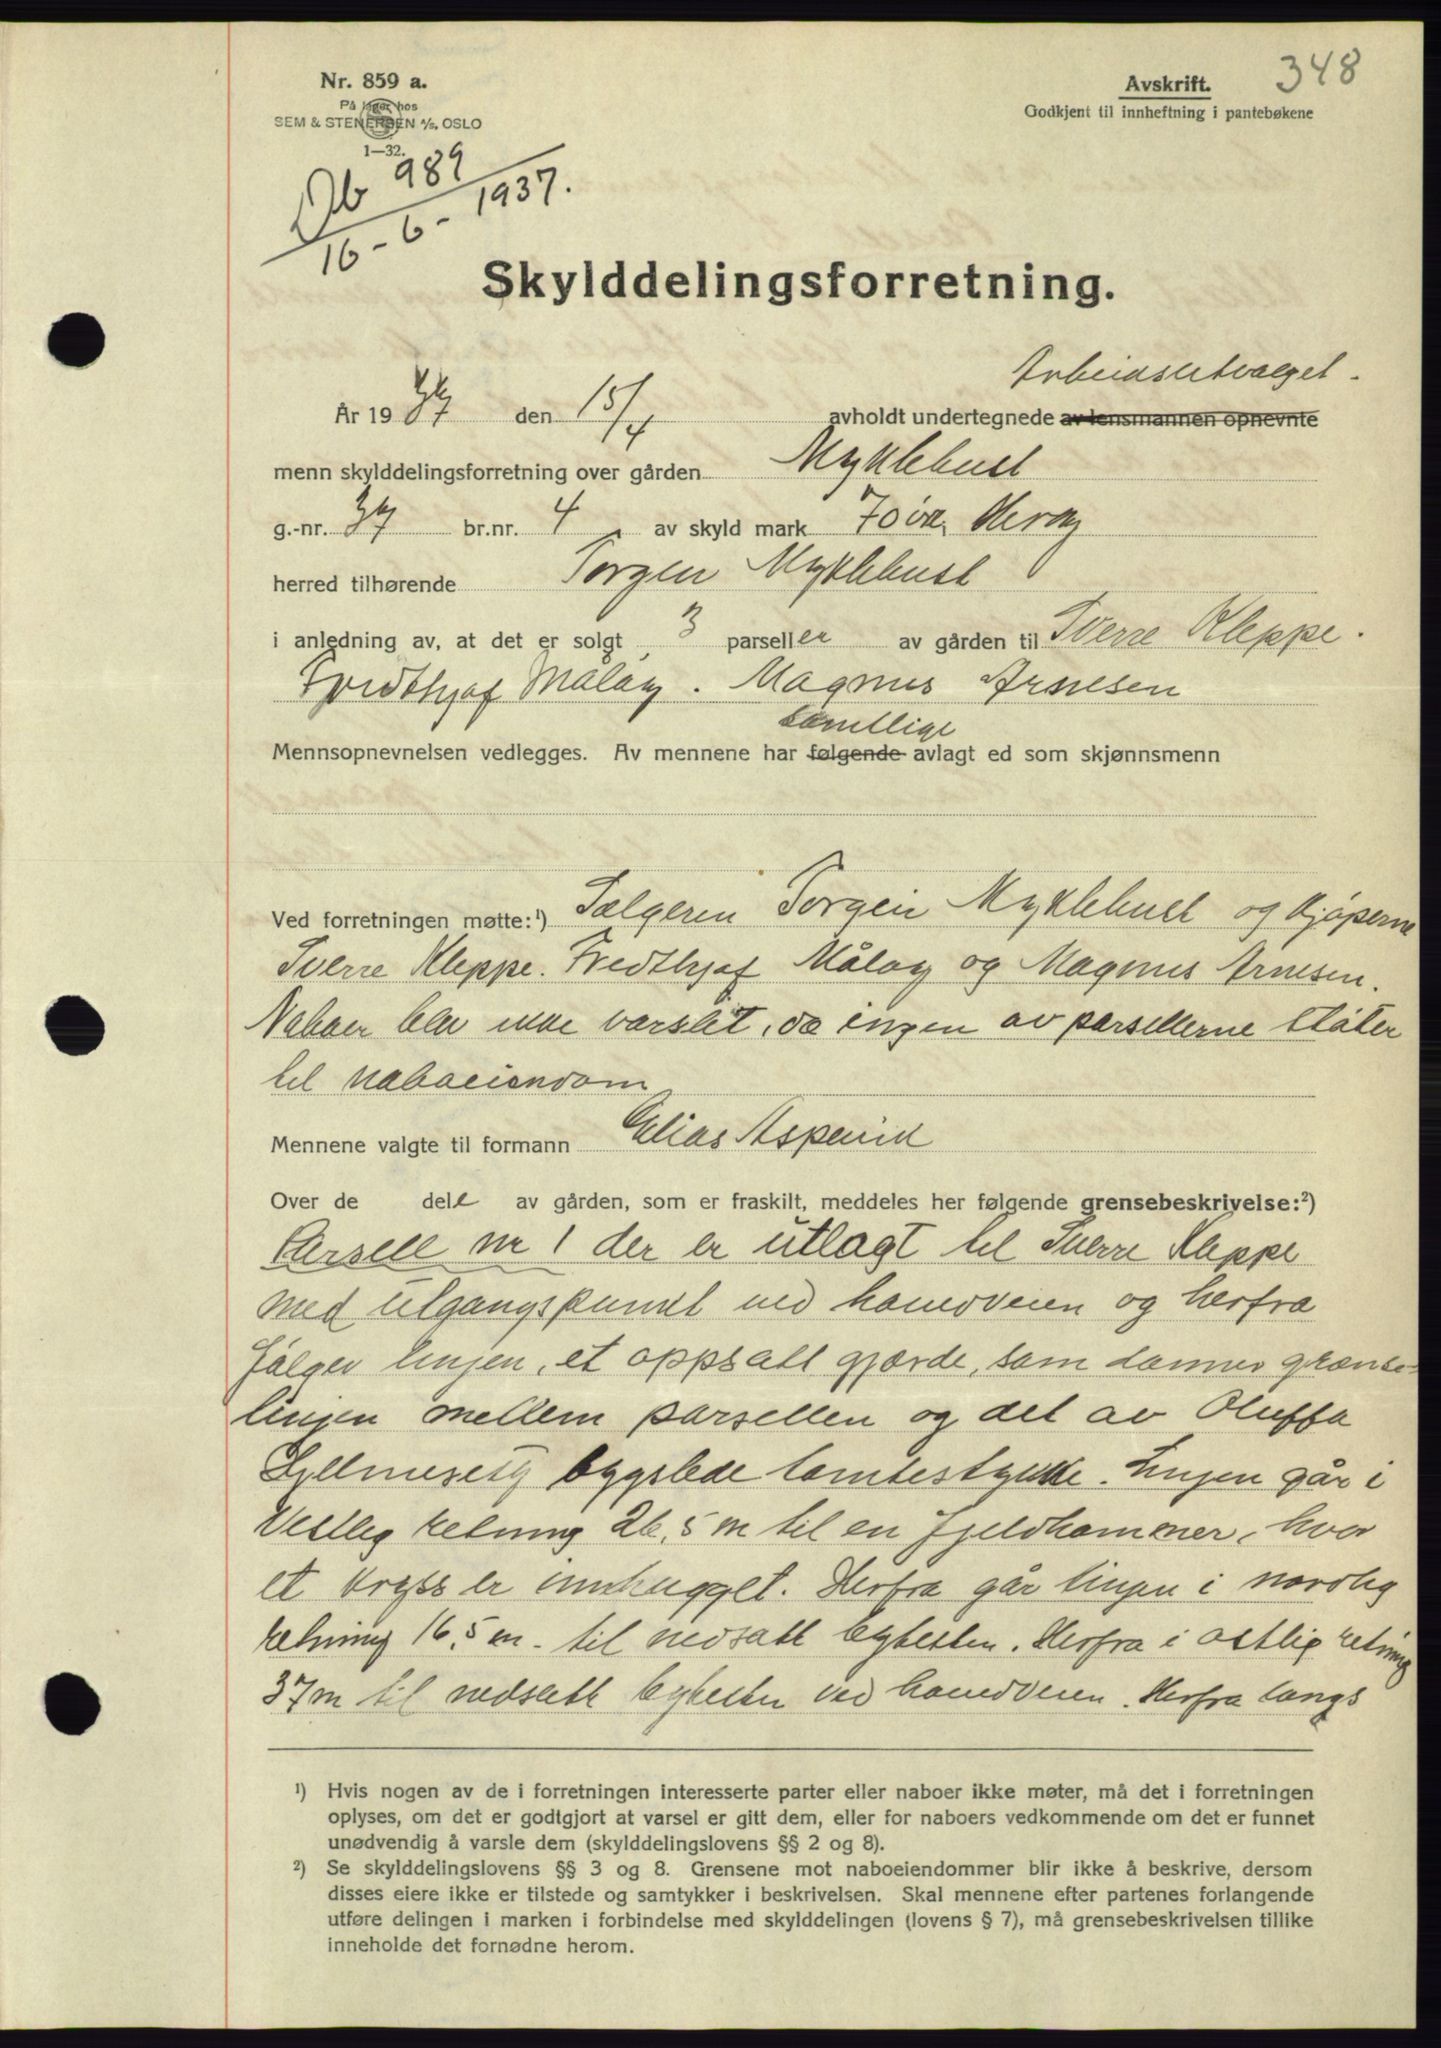 348
Nr. 859 a.
På lager hos
SEM & STENERSEN A/S, OSLO
1—32.
Avskrift.
Godkjent til innheftning i pantebøkene
Db 989
16-6-1937.
Skylddelingsforretning.
Arbeidsutvalget.
År 1937 den 15/4 avholdt undertegnede av lensmannen opnevnte
menn skylddelingsforretning over gården Myklebust
g.-nr. 37 br.nr. 4 av skyld mark 70 øre, Herøy
herred tilhørende Jørgen Myklebust
i anledning av, at det er solgt 3 parseller av gården til Sverre Kleppe.
Fridthjof Måløy. Magnus Arnesen
samtlige
Mennsopnevnelsen vedlegges. Av mennene har følgende avlagt ed som skjønnsmenn
Ved forretningen møtte:¹) Selgeren Jørgen Myklebust og kjøperne
Sverre Kleppe. Fredthjof Måløy og Magnus Arnesen.
Naboer blev ikke varslet, da ingen av parsellerne støter
til naboeiendom
Mennene valgte til formann Elias Aspevik
Over de dele av gården, som er fraskilt, meddeles her følgende grensebeskrivelse:²)
Parsell nr 1 der er utlagt til Sverre Kleppe
med utgangspunkt ved hovedveien og herfra
følger linjen, et oppsatt gjærde, som danner grænse-
linjen mellem parsellen og det av Oluffa
bygslede tomtestykke. Linjen går i
Vestlig retning 26,5 m til en fjeldhammer, hvor
et kryss er innhugget. Herfra går linjen i nordlig
retning 16,5 m. til nedsatt bytesten. Herfra i østlig retning
37 m til nedsatt bytesten ved hovedveien. Herfra langs
¹) Hvis nogen av de i forretningen interesserte parter eller naboer ikke møter, må det i forretningen
oplyses, om det er godtgjort at varsel er gitt dem, eller for naboers vedkommende om det er funnet
unødvendig å varsle dem (skylddelingslovens §§ 2 og 8).
²) Se skylddelingslovens §§ 3 og 8. Grensene mot naboeiendommer blir ikke å beskrive, dersom
disses eiere ikke er tilstede og samtykker i beskrivelsen. Skal mennene efter partenes forlangende
utføre delingen i marken i forbindelse med skylddelingen (lovens § 7), må grensebeskrivelsen tillike
inneholde det fornødne herom.